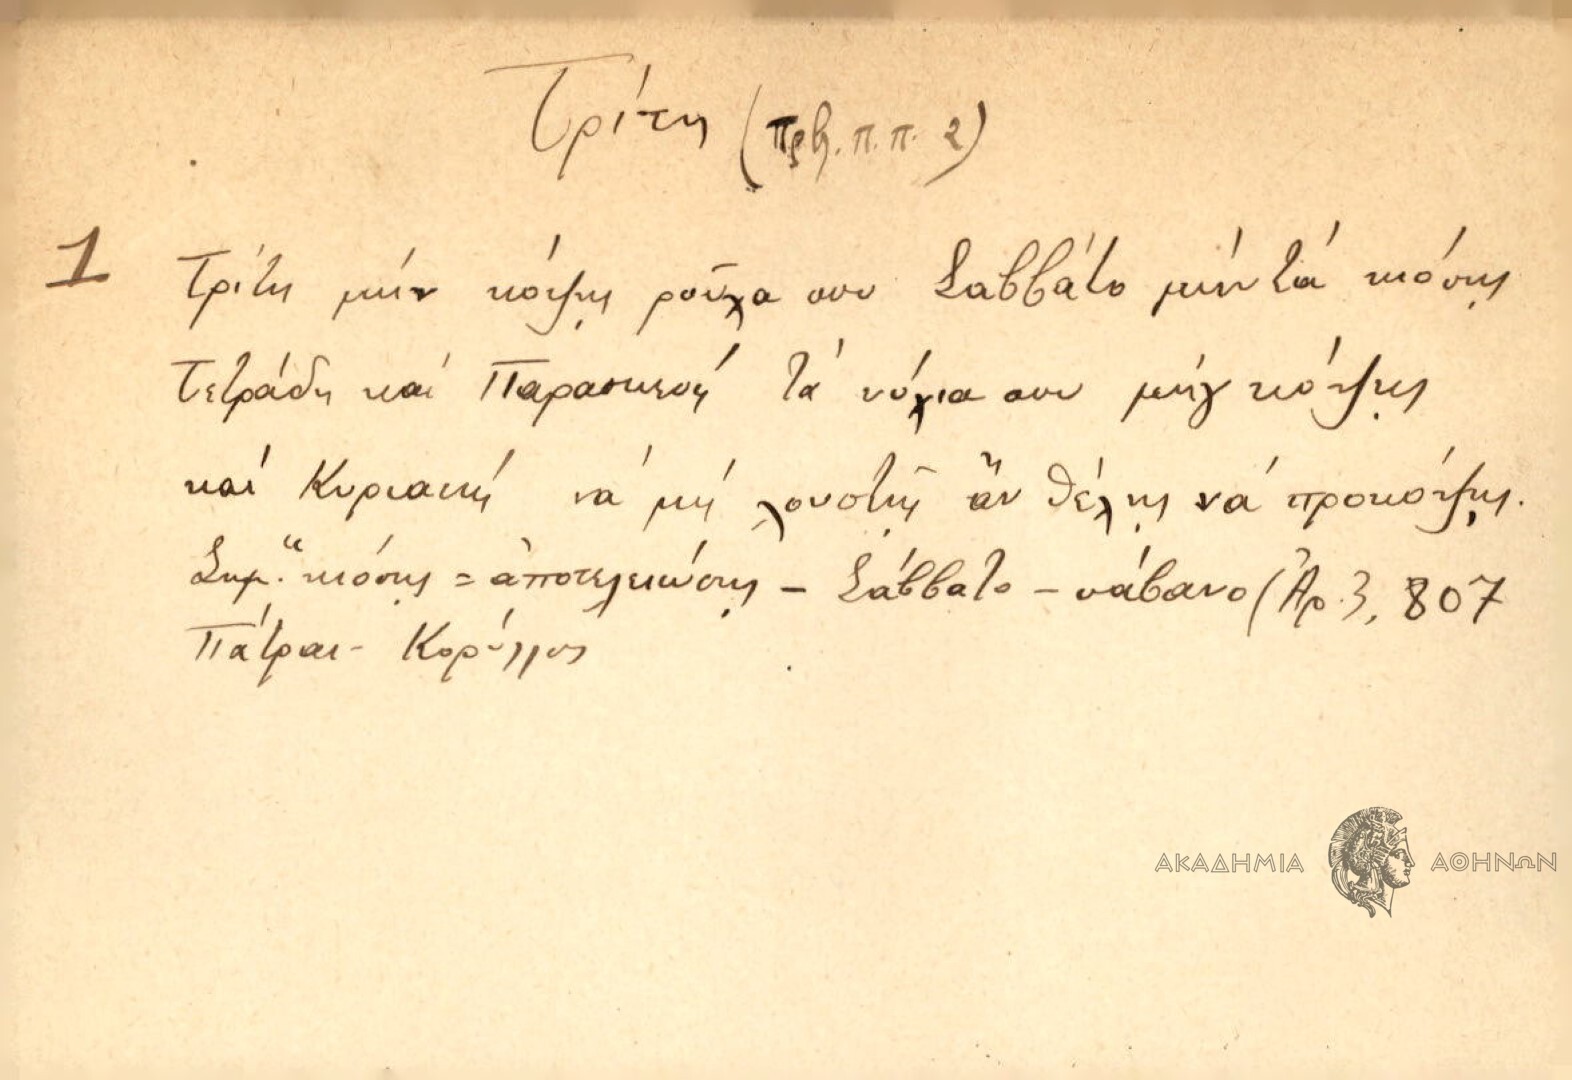 Τρίτη (πρβ. π.π. 2)
1 Τρίτη μήν κόψῃς ροῦχα σου Σαββάτο μήν τά κιόσῃς
Τετράδη καί Παρασκευή τά νύχια σου μήγ κόψῃς
καί Κυριακή νά μή λουστῇς ἄν θέλῃς νά προκόψῃς.
Σημ. "κιόσῃς = ἀποτελειώσῃς – Σάββατο – σάβανο (Ἀρ. 3, 807
Πάτραι - Κορύλλος
ΑΚΑΔΗΜΙΑ ΑΘΗΝΩΝ